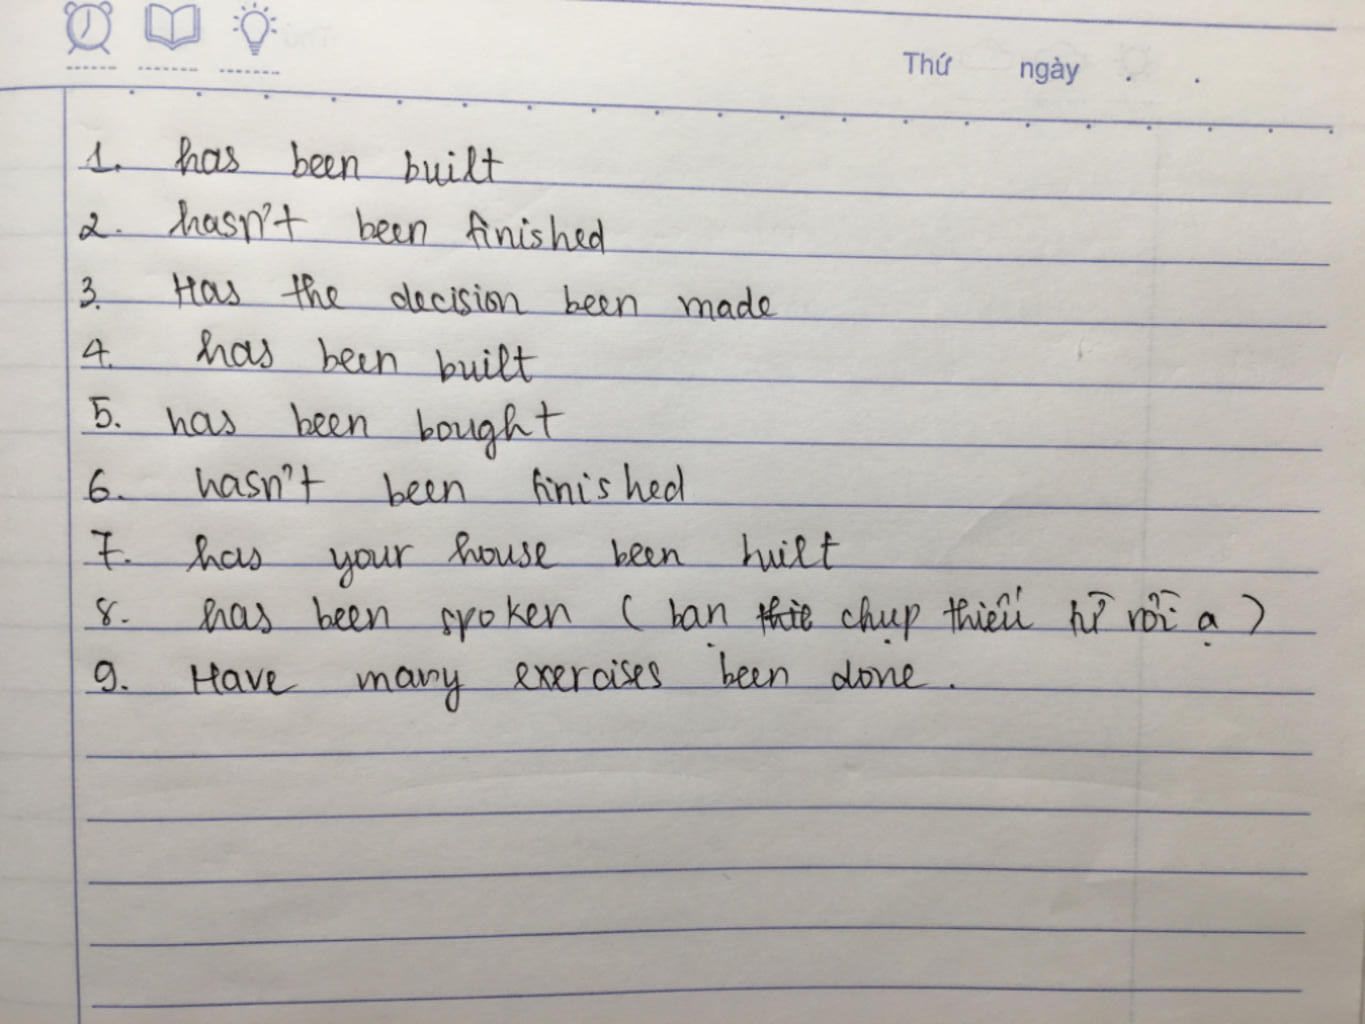 Thứ ngày . .
1. has been built
2. hasn't been finished
3. Has the decision been made
4. has been built
5. has been bought
6. hasn't been finished
7. has your house been built
8. has been spoken ( bạn chụp thiếu từ rồi ạ )
9. Have many exercises been done.